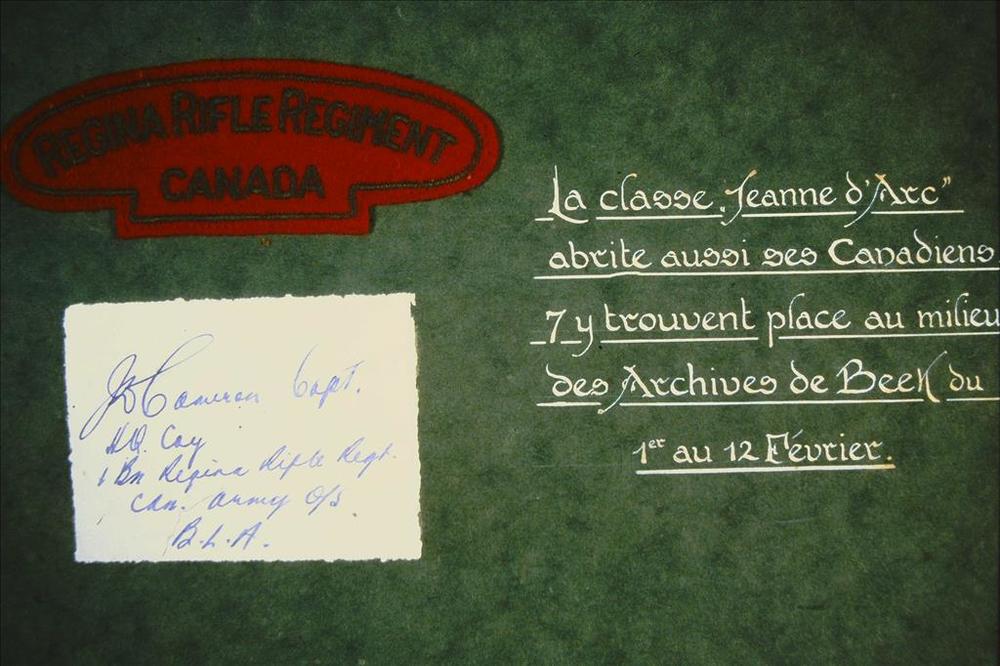 REGINA RIFLE REGIMENT
CANADA
JD Cameron Capt.
HQ. Coy
1 Bn Regina Rifle Regt.
Can. Army O/S
B.L.A.
La classe „Jeanne d'Arc”
abrite aussi ses Canadiens.
7 y trouvent place au milieu
des Archives de Beek du
1er au 12 Février.